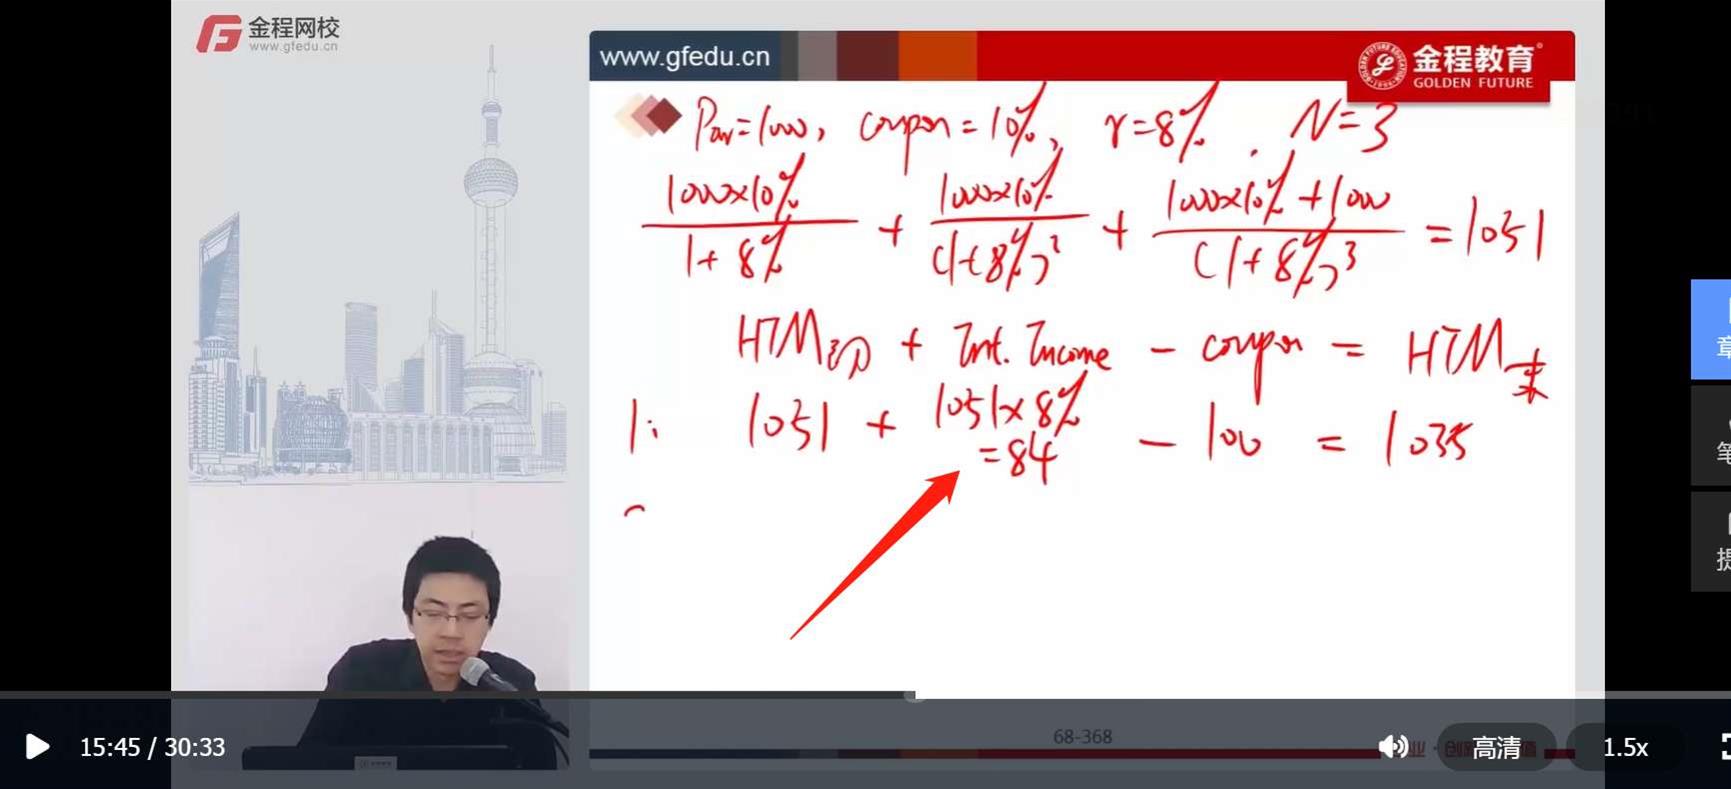 金程网校
www.gfedu.cn
www.gfedu.cn
金程教育
GOLDEN FUTURE
Par=1000, coupon=10%, r=8%. N=3
1000×10% / 1+8% + 1000×10% / (1+8%)² + 1000×10%+1000 / (1+8%)³ = 1051
HTM初 + Int. Income - coupon = HTM末
1: 1051 + 1051×8% - 100 = 1035
=84
68-368
15:45 / 30:33
高清
1.5x
章
笔
提